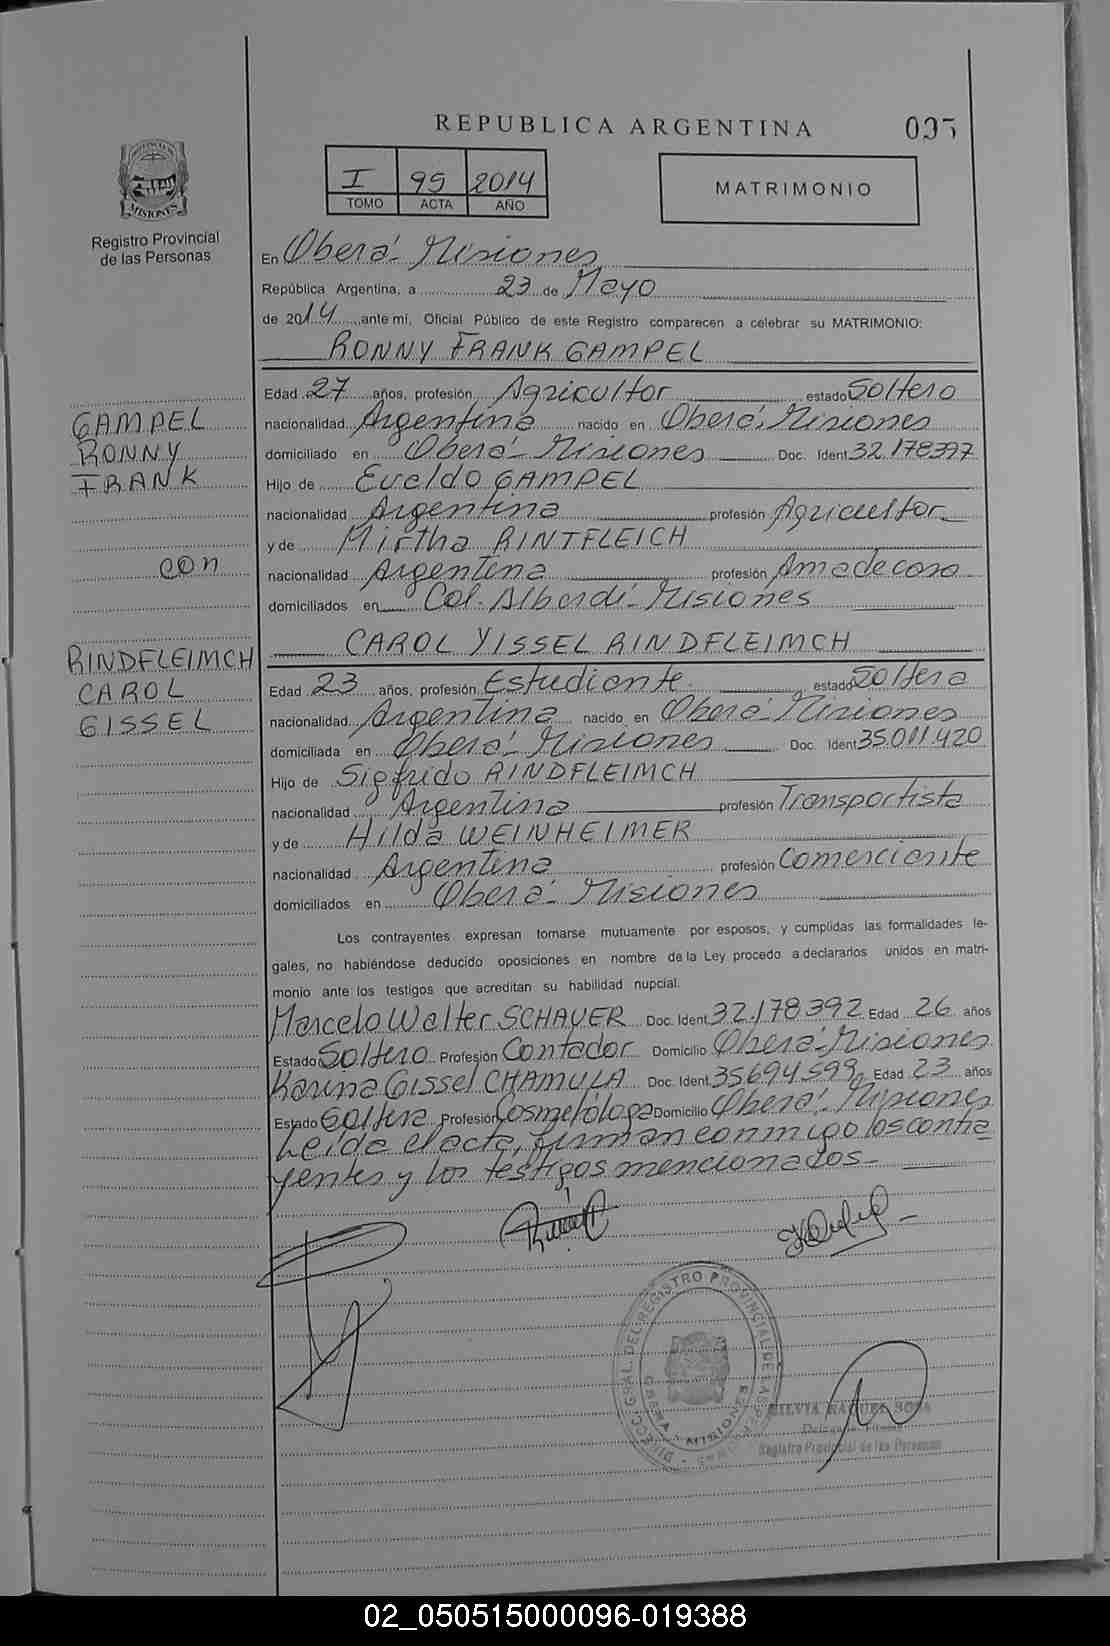 REPUBLICA ARGENTINA
MATRIMONIO
I 99 2014
TOMO ACTA AÑO
PROVINCIA DE
MISIONES
Registro Provincial
de las Personas
En Oberá - Misiones
República Argentina, a 23 de Mayo
de 2014 ante mí, Oficial Público de este Registro comparecen a celebrar su MATRIMONIO:
RONNY FRANK GAMPEL
Edad 27 años, profesión Agricultor estado Soltero
nacionalidad Argentina nacido en Oberá, Misiones
domiciliado en Oberá - Misiones Doc. Ident 32.178397
Hijo de Evaldo GAMPEL
nacionalidad Argentina profesión Agricultor
y de Mirtha RINTFLEICH
nacionalidad Argentina profesión Amadecasa
domiciliados en Col. Alberdi - Misiones
GAMPEL
RONNY
FRANK
con
RINDFLEIMCH
CAROL
GISSEL
CAROL YISSEL RINDFLEIMCH
Edad 23 años, profesión Estudiante estado Soltera
nacionalidad Argentina nacido en Oberá - Misiones
domiciliada en Oberá - Misiones Doc. Ident 35.011.420
Hijo de Sigfrido RINDFLEIMCH
nacionalidad Argentina profesión Transportista
y de Hilda WEINHEIMER
nacionalidad Argentina profesión Comerciante
domiciliados en Oberá - Misiones
Los contrayentes expresan tomarse mutuamente por esposos, y cumplidas las formalidades le-
gales, no habiéndose deducido oposiciones en nombre de la Ley procedo a declararlos unidos en matri-
monio ante los testigos que acreditan su habilidad nupcial.
Marcelo Walter SCHAUER Doc. Ident 32.178392 Edad 26 años
Estado Soltero Profesión Contador Domicilio Oberá - Misiones
Karina Gissel CHAMULA Doc. Ident 35694599 Edad 23 años
Estado Soltera Profesión Cosmetóloga Domicilio Oberá - Misiones
Leída el acta, firman conmigo los contra
yentes y los testigos mencionados -
DIRECC. GRAL. DEL REGISTRO PROVINCIAL DE LAS PERSONAS
OBERA - MISIONES
SILVIA RAQUEL SOSA
Registro Provincial de las Personas
02_050515000096-019388